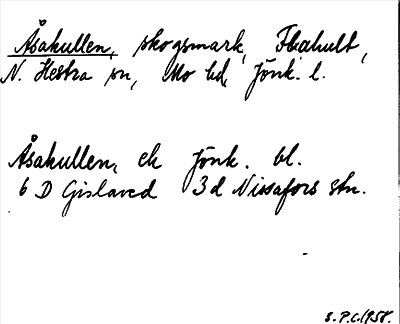 Åsakullen, skogsmark, Flahult,
N. Hestra sn, Mo hd, Jönk. l.
Åsakullen, ek Jönk. bl.
6 D Gislaved 3d Nissafors stn.
S.P.C. 1958.